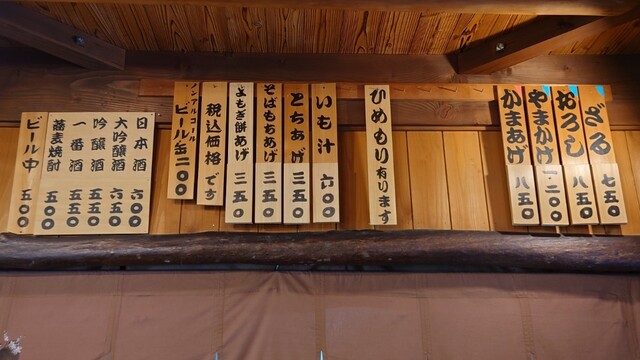 ざる 七五〇
おろし 八五〇
やまかけ 一二〇〇
かまあげ 八五〇
ひめもり有ります
いも汁 六〇〇
とちあげ 三五〇
そばもちあげ 三五〇
よもぎ餅あげ 三五〇
税込価格です
ノンアルコール
ビール缶二〇〇
日本酒 六〇〇
大吟醸酒 六五〇
吟醸酒 五五〇
一番酒 五五〇
蕎麦焼酎 五〇〇
ビール中 五〇〇